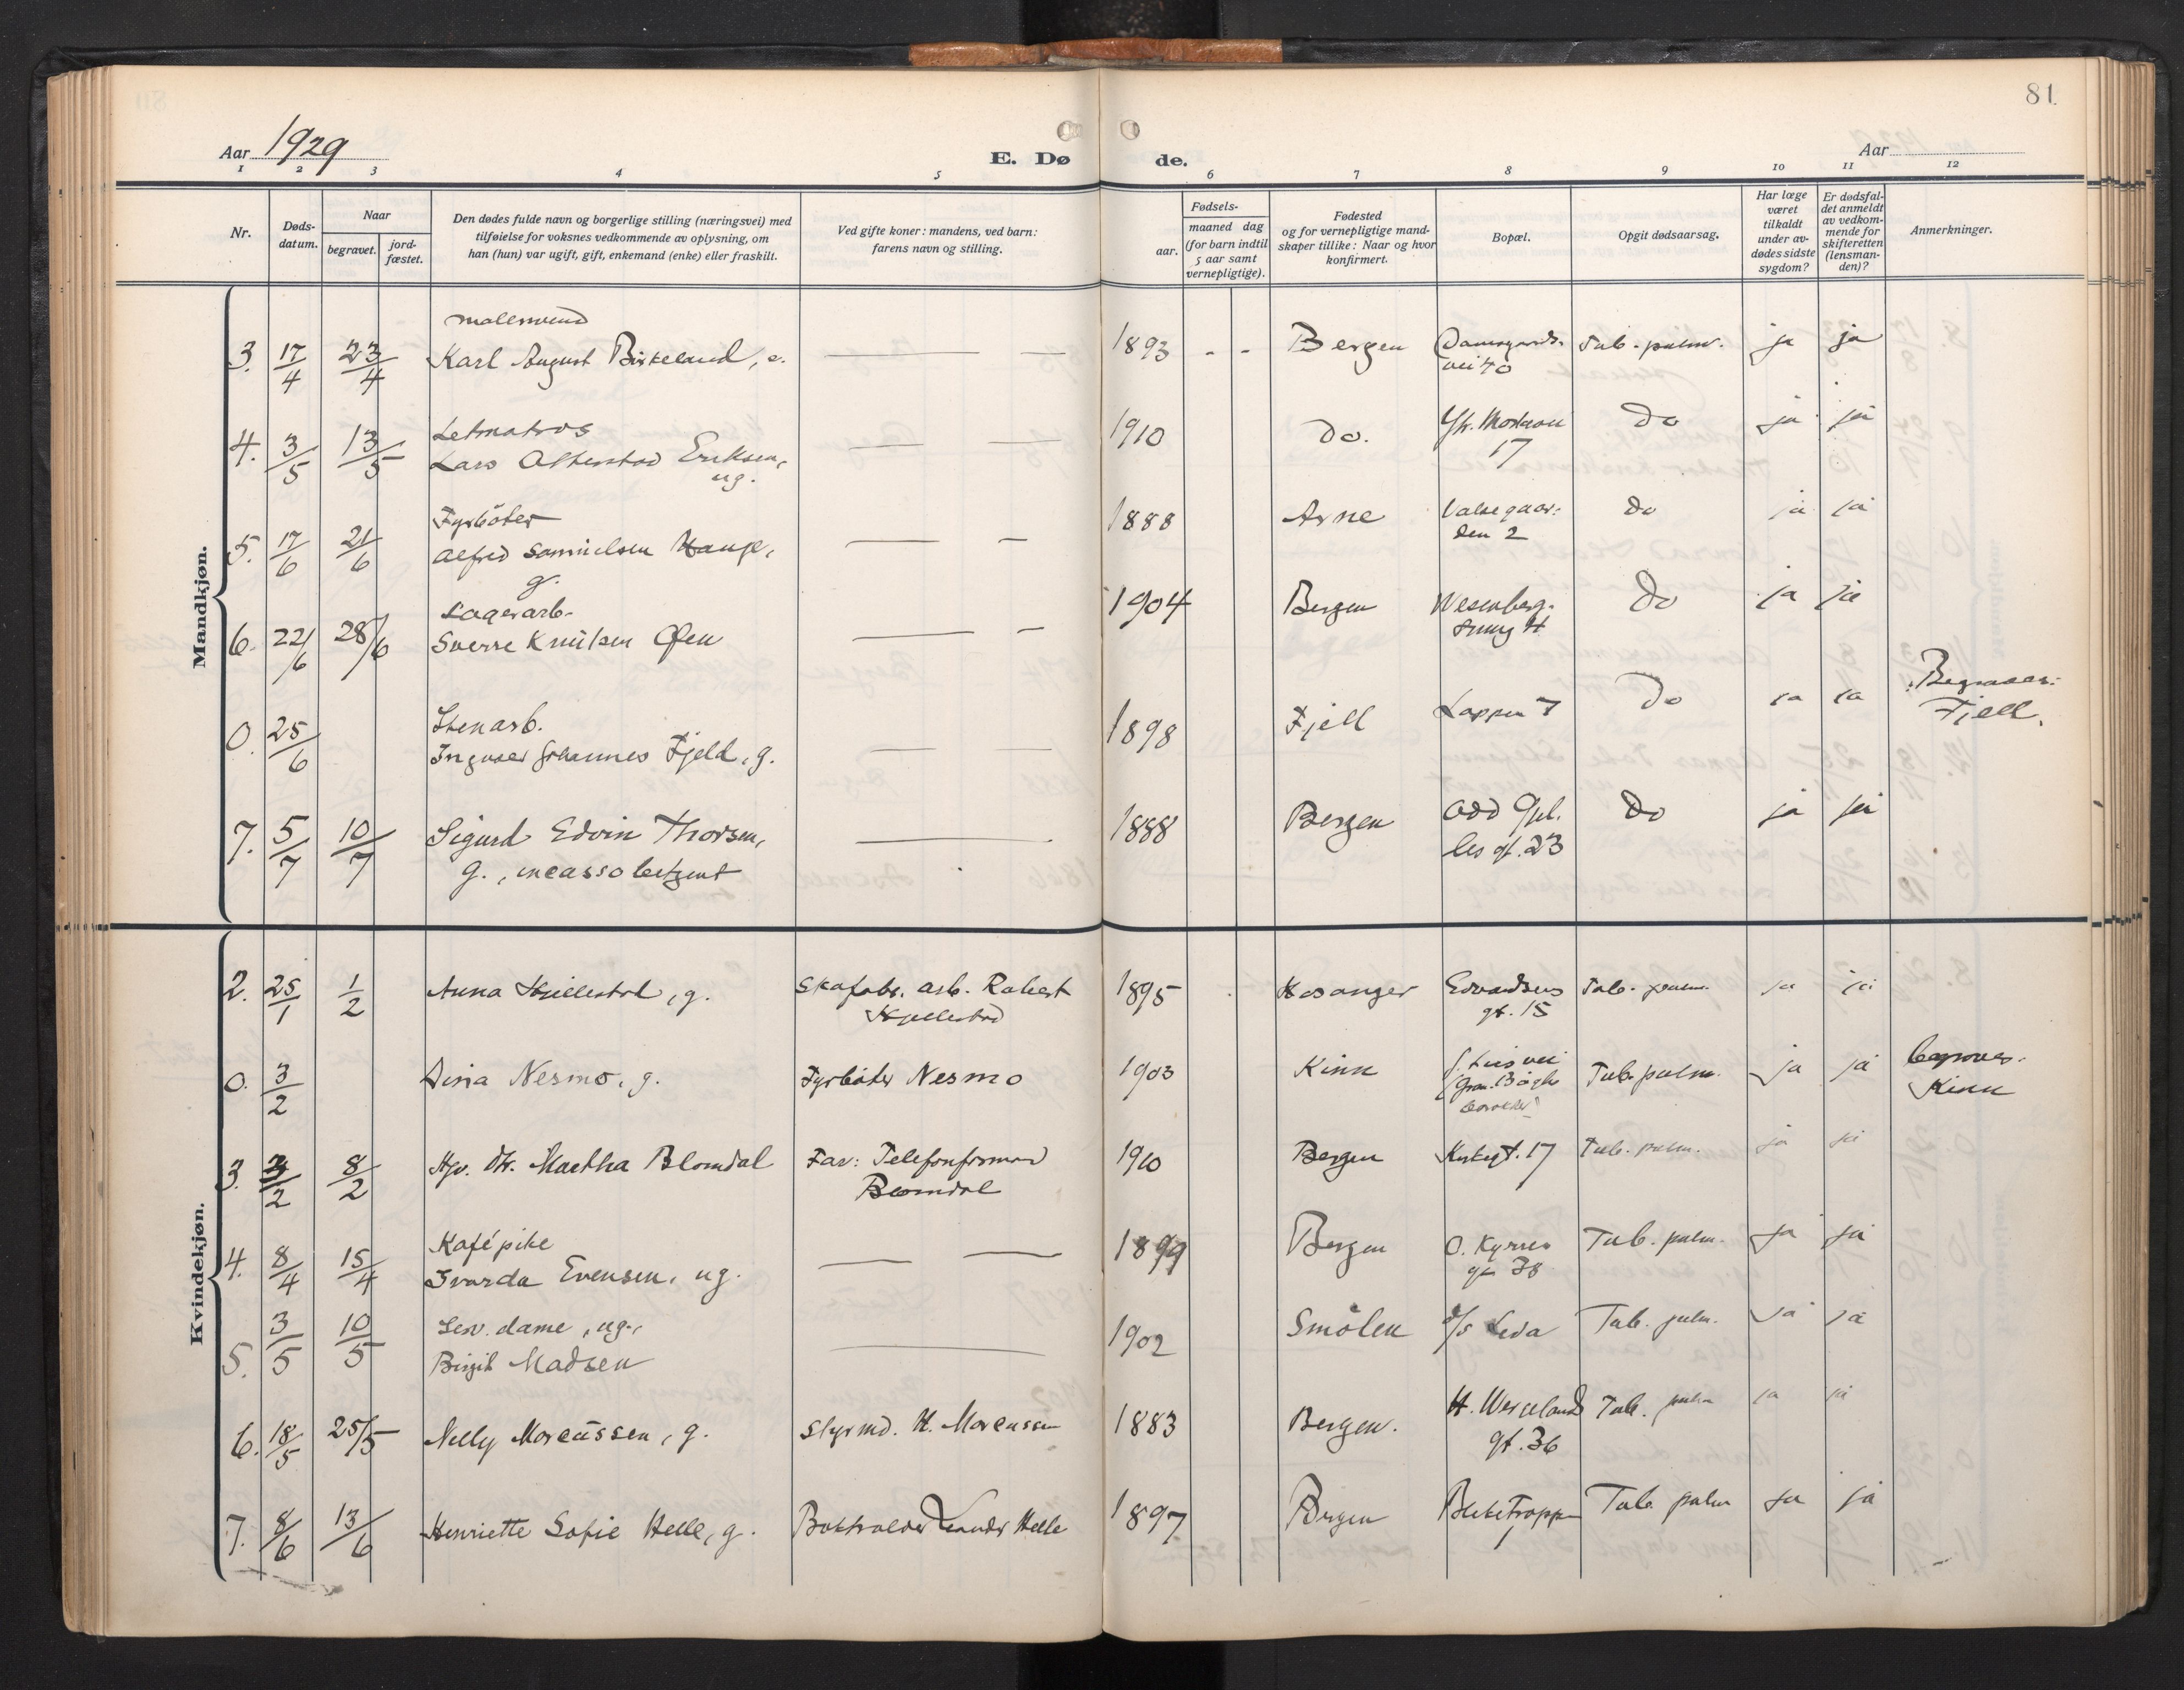 81.
Aar 1929
E. Dø de.
Aar
1 2 3 4 5 6 7 8 9 10 11 12
Nr.
Døds-
datum.
Naar
begravet.
jord-
fæstet.
Den dødes fulde navn og borgerlige stilling (næringsvei) med
tilføielse for voksnes vedkommende av oplysning, om
han (hun) var ugift, gift, enkemand (enke) eller fraskilt.
Ved gifte koner: mandens, ved barn:
farens navn og stilling.
Fødsels-
aar.
maaned dag
(for barn indtil
5 aar samt
vernepligtige).
Fødested
og for vernepligtige mand-
skaper tillike: Naar og hvor
konfirmert.
Bopæl.
Opgit dødsaarsag.
Har læge
været
tilkaldt
under av-
dødes sidste
sygdom?
Er dødsfal-
det anmeldt
av vedkom-
mende for
skifteretten
(lensman-
den)?
Anmerkninger.
Mandkjøn.
malersvend
3. 17/4 23/4 Karl August Birkeland, e. — — 1893 - - Bergen Damsgaards- Tub. pulm. ja ja
vei 70
Letmatros
4. 3/5 13/5 Lars Eriksen, — — 1910 Do. Do ja ja
ug. 17
Fyrbøter
5. 17/6 21/6 Alfred Samuelsen Hauge, — — 1888 Arne Valkegaar- Do ja ja
g. den 2
Lagerarb.
6. 22/6 28/6 Sverre Knutsen Øen — — 1904 Bergen Wesenberg- Do ja ja
smug 4
Stenarb.
0. 25/6 Ingvar Johannes Fjeld, g. — — 1898 Fjell Lappen 7 Do ja ja Begraves:
Fjell.
7. 5/7 10/7 Sigurd Edvin Thorsen, — 1888 Bergen Odd Gjel. Do ja ja
g., incassobetjent les gt. 23
Kvindekjøn.
2. 25/1 1/2 Anna Hjellestad, g. Skofabr. arb. Robert 1895 Hosanger Edvardsens Tub. pulm. ja ja
Hjellestad gt. 15
0. 3/2 Nesmo, g. Fyrbøter Nesmo 1903 Kinn Tub. pulm. ja ja begraves.
Kinn
3. 3/2 8/2 Hjv. dtr. Martha Blomdal Far: Telefonformand 1910 Bergen Kirkegt. 17 Tub. pulm. ja ja
Blomdal
Kafépike
4. 8/4 15/4 Ivarda Evensen, ug. — — 1899 Bergen O. Kyrres Tub. pulm. ja ja
gt 38
Serv. dame, ug.,
5. 3/5 10/5 Birgit Madsen — 1902 Smølen d/s Leda Tub. pulm. ja ja
6. 18/5 25/5 Nelly Marcussen, g. Styrmd. H. Marcussen 1883 Bergen. H. Wergelands Tub. pulm ja ja
gt. 36
7. 8/6 13/6 Henriette Sofie Helle, g. Bokholder Leander Helle 1897 Bergen Bleketrappen Tub. pulm ja ja
1